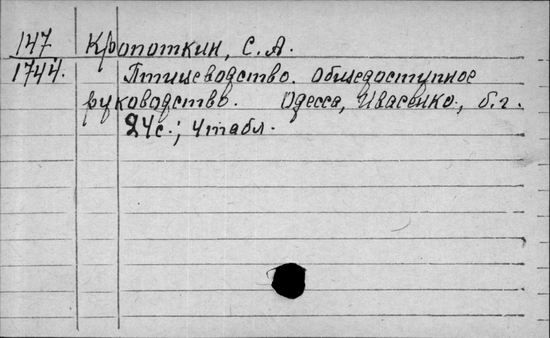 147 Кропоткин, С.А.
1744. Птицеводство. Общедоступное
руководство. Одесса, Ивасенко, б.г.
24с.; 4табл.